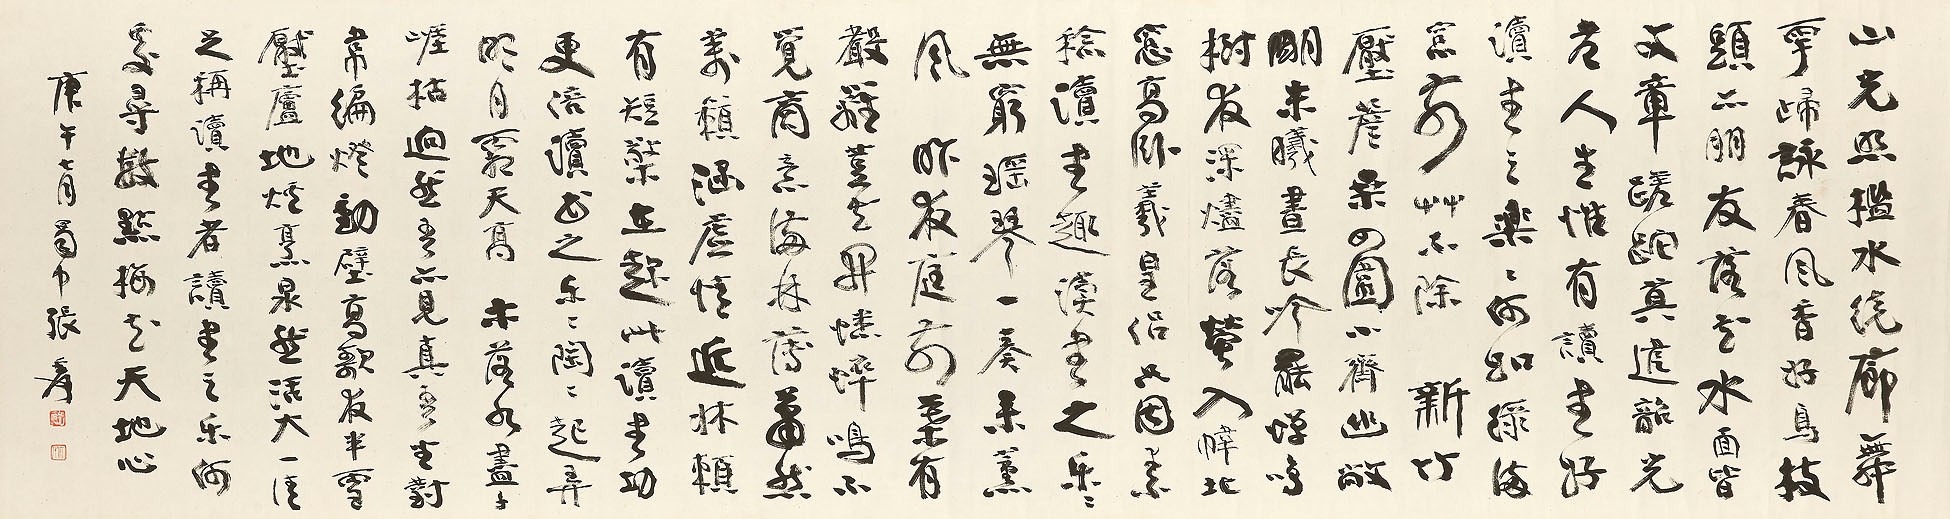 山光照檻水繞廊舞
雩歸詠春風香好鳥枝
頭亦朋友落花水面皆
文章蹉跎莫遣韶光
老人生惟有讀書好
讀書之樂〻何如綠滿
窗前艸不除 新竹
壓簷桑四圍小齋幽敞
明朱曦晝長吟罷蟬鳴
樹夜深燼落螢入幃北
窗高臥羲皇侶只因素
稔讀書趣讀書之樂〻
無窮瑤琴一奏來薰
風 昨夜庭前葉有
聲籬豆花開蟋蟀鳴不
覺商意滿林薄蕭然
萬籟涵虛清近牀賴
有短檠在趁此讀書功
更倍讀書之樂〻陶〻起弄
明月霜天高 木落水盡千
崖枯迥然吾亦見真吾坐對
韋編燈動壁高歌夜半雪
壓廬地爐烹泉然活火一清
足稱讀書者讀書之樂何
處尋數點梅花天地心
庚午七月蜀中張爰